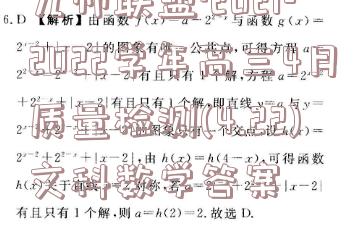 九师联盟2021-
6.D 【解析】由函数 f(x)=a-2²⁻ˣ 与函数 g(x)=
的图象有 公共点,可得方程 a
2022学年高三4月
有且只有1个解,方程 a=2ˣ⁻²
+2²⁻ˣ+|x-2|有且只有1个解,即直线 y=a 与 y=
质量检测(4.22)
的图象只有一个交点,设 h(x)=
2ˣ⁻²+2²⁻ˣ+|x-2|,由 h(x)=h(4-x),可得函数
文科数学答案
h(x)关于直线 x=2 对称,若 a=
|x-2|
有且只有1个解,则 a=h(2)=2.故选 D.